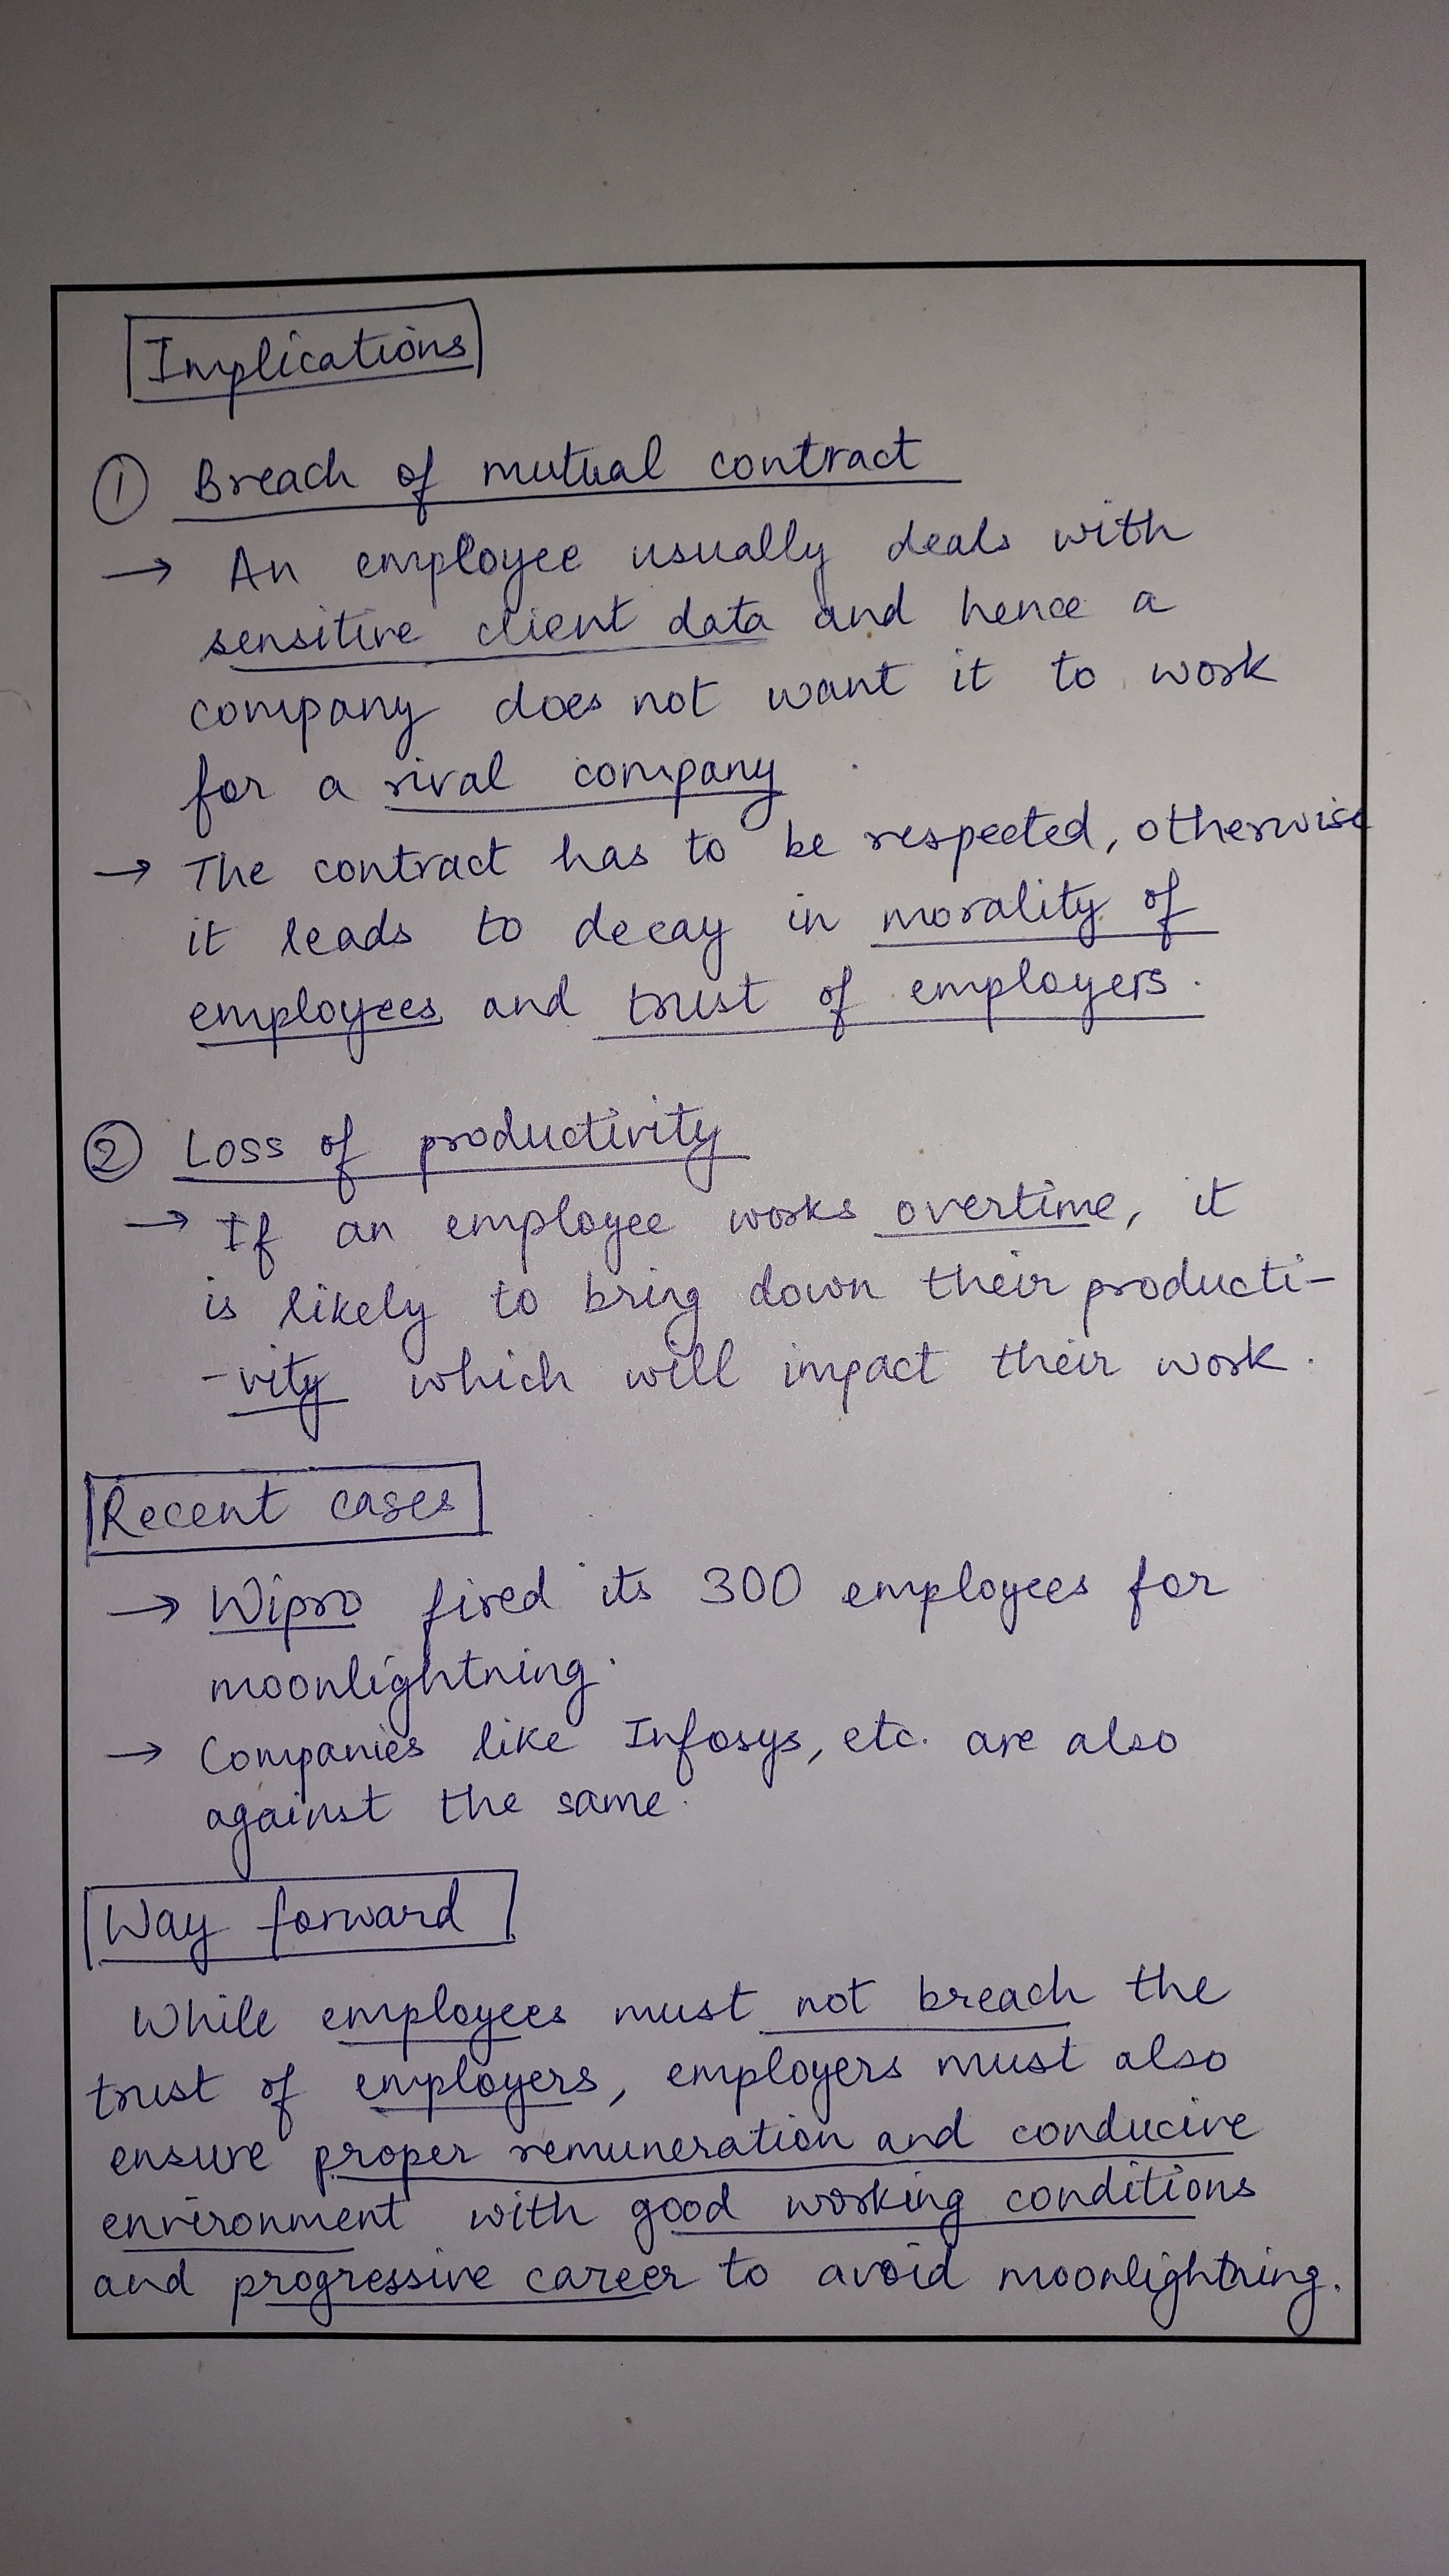 Implications
① Breach of mutual contract
→ An employee usually deals with
sensitive client data and hence a
company does not want it to work
for a rival company.
→ The contract has to be respected, otherwise
it leads to decay in morality of
employees and trust of employers.
② Loss of productivity
→ If an employee works overtime, it
is likely to bring down their producti-
-vity which will impact their work.
Recent cases
→ Wipro fired its 300 employees for
moonlightning.
→ Companies like Infosys, etc. are also
against the same.
Way forward
While employees must not breach the
trust of employers, employers must also
ensure proper remuneration and conducive
environment with good working conditions
and progressive career to avoid moonlightning.